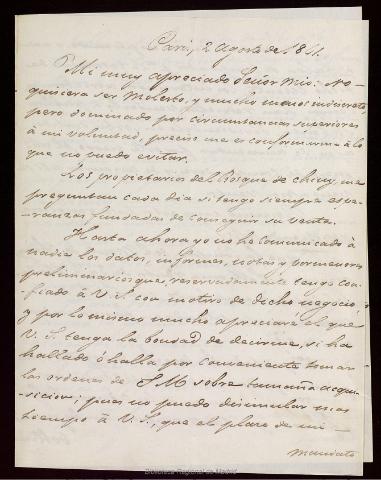 Paris, 2 agosto de 1841.
Mi muy apreciado Señor mio: No
quisiera ser molesto, y mucho menos indiscreto,
pero dominado por circunstancias superiores
à mi voluntad, preciso me es conformarme à lo
que no puedo evitar.
Los propietarios del Bosque de me
preguntan cada dia si tengo siempre espe-
ranzas fundadas de conseguir su venta.
Hasta ahora yo no he comunicado à
nadie los datos, informes, notas y pormenores
preliminarios que, reservadamente tengo con-
fiado à V.S. con motivo de dicho negocio;
y por lo mismo mucho apreciaré el que
V.S. tenga la bondad de decirme, si ha
hallado ó halla por conveniente tomar
las ordenes de S.M. sobre tamaña acqui-
sicion; pues no puedo disimular mas
tiempo à V.S., que el plazo de mi
mandato
Biblioteca Regional de Madrid